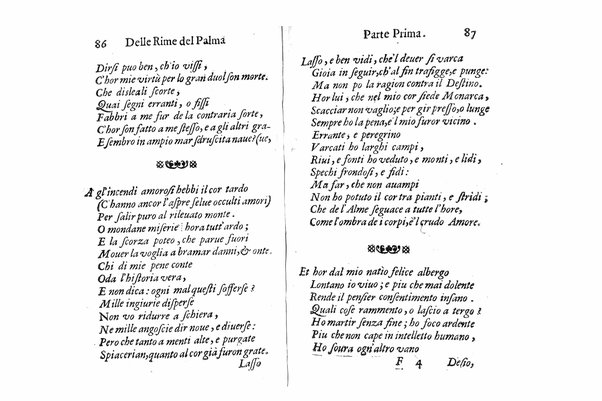 86 Delle Rime del Palma
Dirsi puo ben, ch'io vissi,
C'hor mie virtù per lo gran duol son morte.
Che disleali scorte,
Quai segni erranti, o fissi
Fabbri a me fur de la contraria sorte,
C'hor son fatto a me stesso, e a gli altri gra-
E sembro in ampio mar sdruscita naue? (ue,
A gl'incendi amorosi hebbi il cor tardo
(C'hanno ancor l'aspre selue occulti amori)
Per salir puro al rileuato monte.
O mondane miserie: hora tutt'ardo;
E la scorza poteo, che parue fuori
Mouer la voglia a bramar danni, & onte.
Chi di mie pene conte
Oda l'historia vera,
E non dica: ogni mal questi sofferse?
Mille ingiurie disperse
Non vo ridurre a schiera,
Ne mille angoscie dir noue, e diuerse:
Pero che tanto a menti alte, e purgate
Spiacerian, quanto al cor già furon grate.
Lasso
Parte Prima. 87
Lasso, e ben vidi, che'l deuer si varca
Gioia in seguir, ch'al fin trafigge, e punge:
Ma non po la ragion contra il Destino.
Hor lui, che nel mio cor siede Monarca,
Scacciar non vaglio; e per gir presso, o lunge
Sempre ho la pena, e'l mio furor vicino.
Errante, e peregrino
Varcati ho larghi campi,
Riui, e fonti ho veduto, e monti, e lidi,
Spechi frondosi, e fidi:
Ma far, che non auampi
Non ho potuto il cor tra pianti, e stridi;
Che de l'Alme seguace a tutte l'hore,
Come l'ombra de i corpi, è'l crudo Amore.
Et hor dal mio natio felice albergo
Lontano io viuo; e piu che mai dolente
Rende il pensier consentimento insano.
Quali cose rammento, o lascio a tergo?
Ho martir senza fine; ho foco ardente
Piu che non cape in intelletto humano,
Ho soura ogn'altro vano
F 4 Desio,